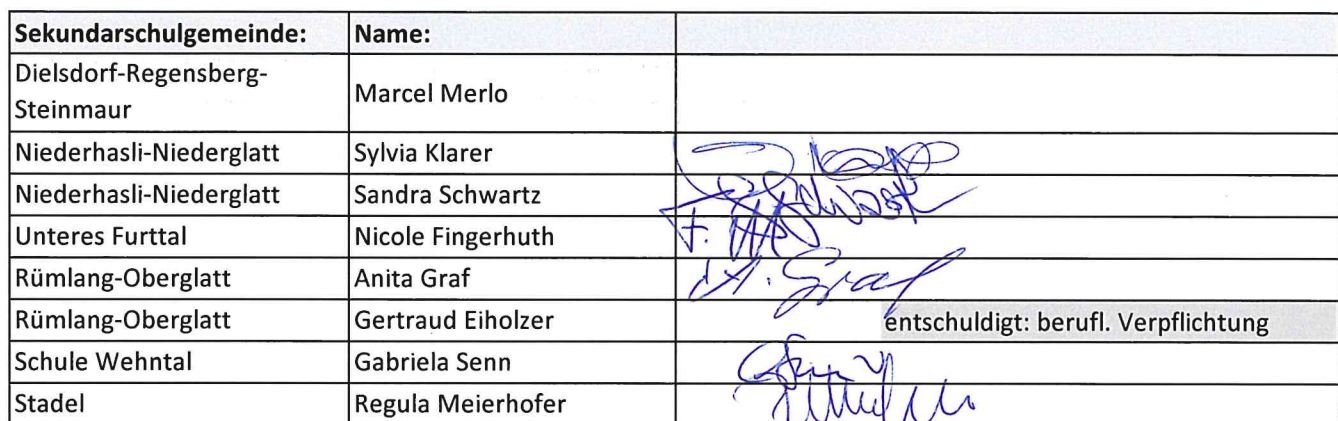 Sekundarschulgemeinde: Name:
Dielsdorf-Regensberg-
Steinmaur Marcel Merlo
Niederhasli-Niederglatt Sylvia Klarer
Niederhasli-Niederglatt Sandra Schwartz
Unteres Furttal Nicole Fingerhuth
Rümlang-Oberglatt Anita Graf A. Graf
Rümlang-Oberglatt Gertraud Eiholzer entschuldigt: berufl. Verpflichtung
Schule Wehntal Gabriela Senn
Stadel Regula Meierhofer